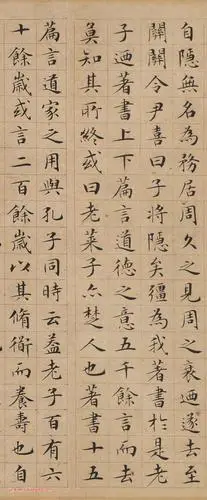 自隱無名為務居周久之見周之衰迺遂去至
關關令尹喜曰子將隱矣彊為我著書於是老
子迺著書上下篇言道德之意五千餘言而去
莫知其所終或曰老萊子亦楚人也著書十五
篇言道家之用與孔子同時云蓋老子百有六
十餘歲或言二百餘歲以其脩衜而養壽也自